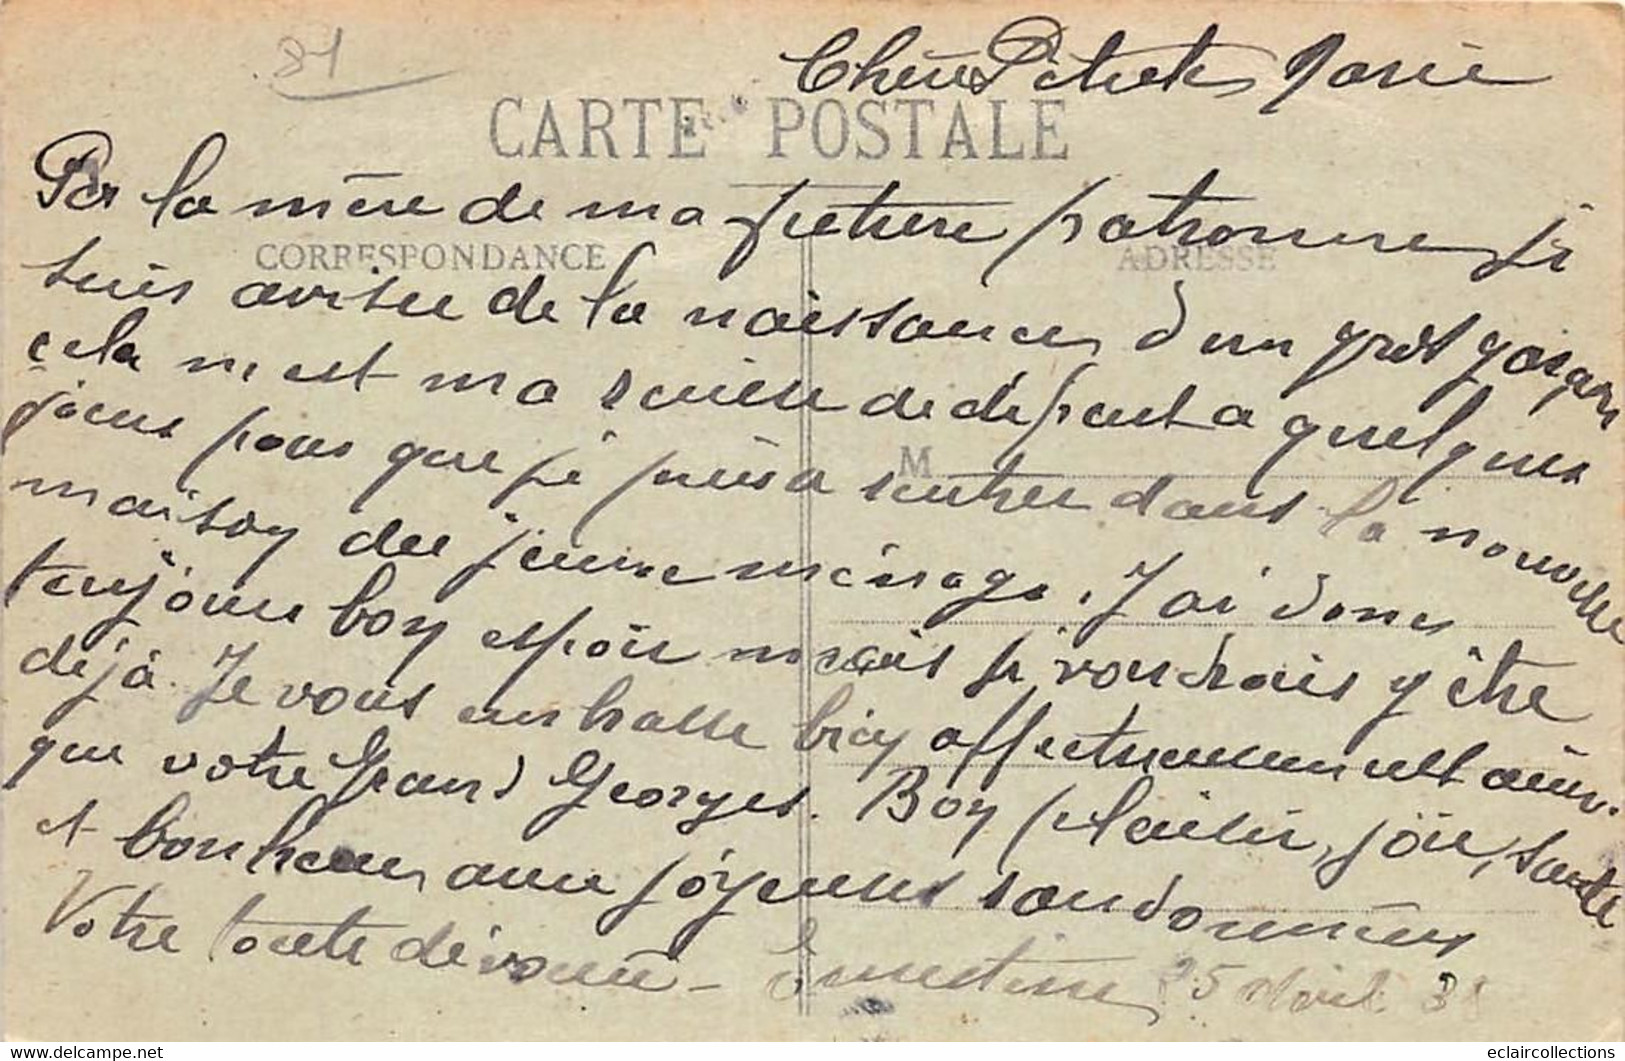 81
Chère Petite Marie
CARTE POSTALE
Par la mère de ma future patronne je
CORRESPONDANCE
ADRESSE
suis avisée de la naissance d'un gros garçon
cela m'est ma remise de départ a quelques
M
jours pour que je puisse rentrer dans la nouvelle
maison du jeune ménage. J'ai donc
toujours bon espoir mais je voudrais y être
déjà. Je vous embrasse bien affectueusement ainsi
que votre Grand Georges. Bon plaisir, joie, santé
et bonheur aux joyeuses randonnées
Votre toute dévouée - Ernestine 25 avril 38
eclaircollections
www.delcampe.net